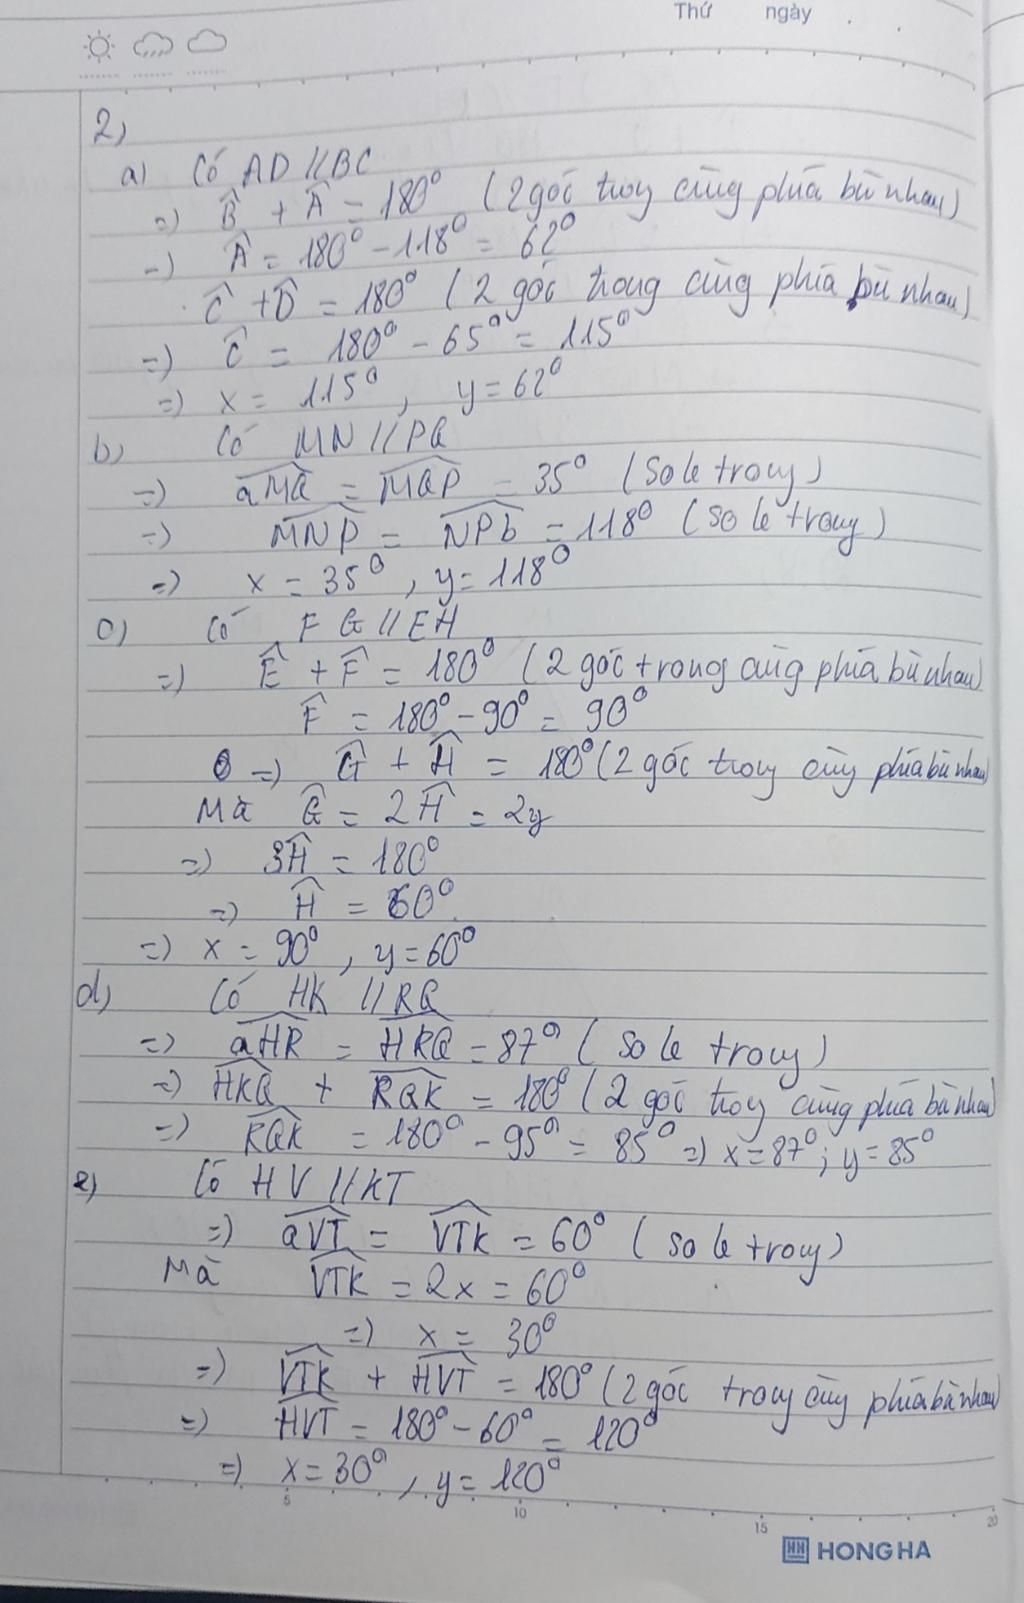 Thứ ngày
2)
a) Có AD // BC
=) B̂ + Â = 180° (2 góc trog cùng phía bù nhau)
=) Â = 180° - 118° = 62°
Ĉ + D̂ = 180° (2 góc trong cùng phía bù nhau)
=) Ĉ = 180° - 65° = 115°
=) x = 115°, y = 62°
b) Có MN // PQ
=) aMQ = MQP = 35° (so le trong)
=) MNP = NPb = 118° (so le trong)
=) x = 35°, y = 118°
c) Có FG // EH
=) Ê + F̂ = 180° (2 góc trong cùng phía bù nhau)
F̂ = 180° - 90° = 90°
=) Ĝ + Ĥ = 180° (2 góc trog cùng phía bù nhau)
Mà Ĝ = 2Ĥ = 2y
=) 3Ĥ = 180°
=) Ĥ = 60°
=) x = 90°, y = 60°
d) Có HK // RQ
=) aHR = HRQ = 87° (so le trong)
=) HKQ + RQK = 180° (2 góc trog cùng phía bù nhau)
=) RQK = 180° - 95° = 85° =) x = 87°; y = 85°
e) Có HV // KT
=) aVT = VTK = 60° (so le trong)
Mà VTK = 2x = 60°
=) x = 30°
=) VTK + HVT = 180° (2 góc trong cùng phía bù nhau)
=) HVT = 180° - 60° = 120°
=) x = 30°, y = 120°
5 10 15 20
HH HONG HA